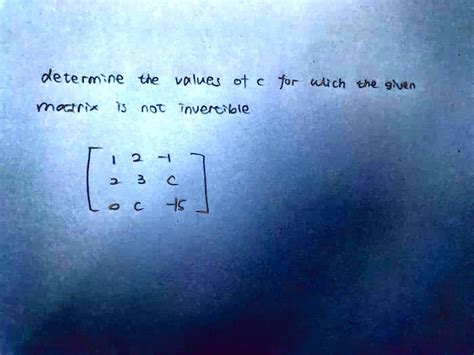 determine the values of c for which the given
matrix is not invertible
1 2 -1
2 3 c
0 c -15